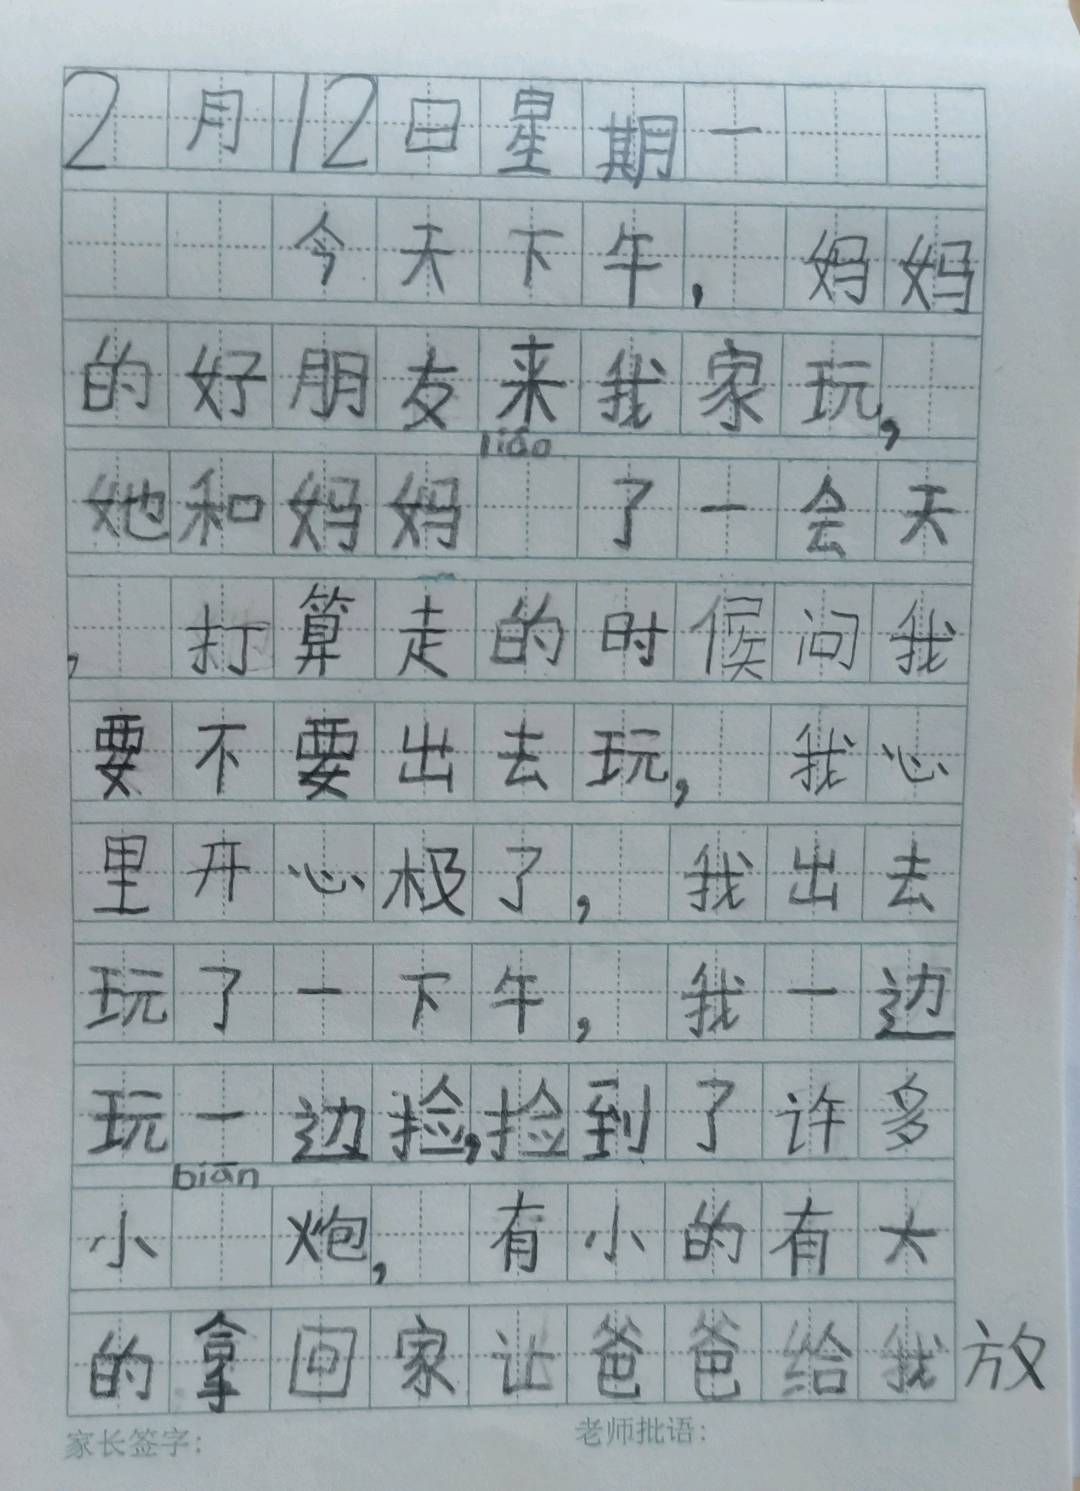 2月12日星期一
今天下午，妈妈
的好朋友来我家玩，
liáo
她和妈妈 了一会天
，打算走的时候问我
要不要出去玩，我心
里开心极了，我出去
玩了一下午，我一边
玩一边捡，捡到了许多
biān
小 炮，有小的有大
的拿回家让爸爸给我放
家长签字： 老师批语：